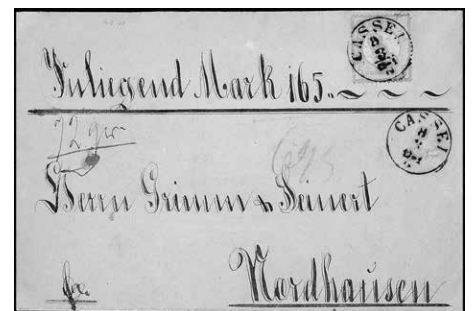 CASSEL
Inliegend Mark 165.
CASSEL
72 gr
695
Herrn Grimm & Seinert
fr.
Nordhausen